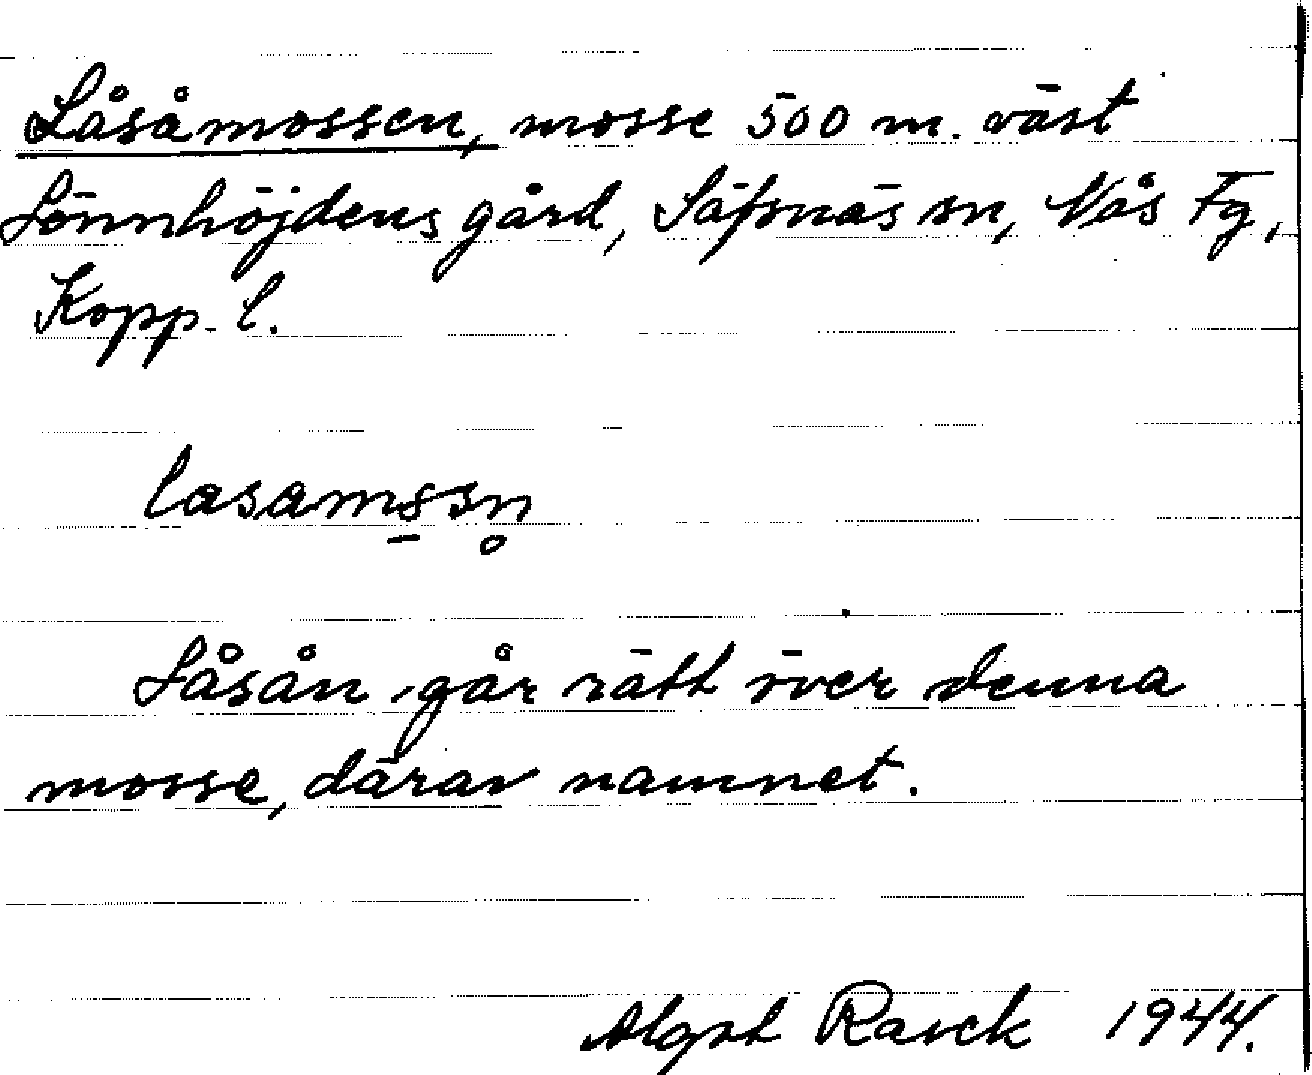 Låsåmossen, mosse 500 m. väst
Lönnhöjdens gård, Säfsnäs sn, Nås Fg,
Kopp. l.
Låsån går rätt över denna
mosse, därav namnet.
Algot Rasck 1944.